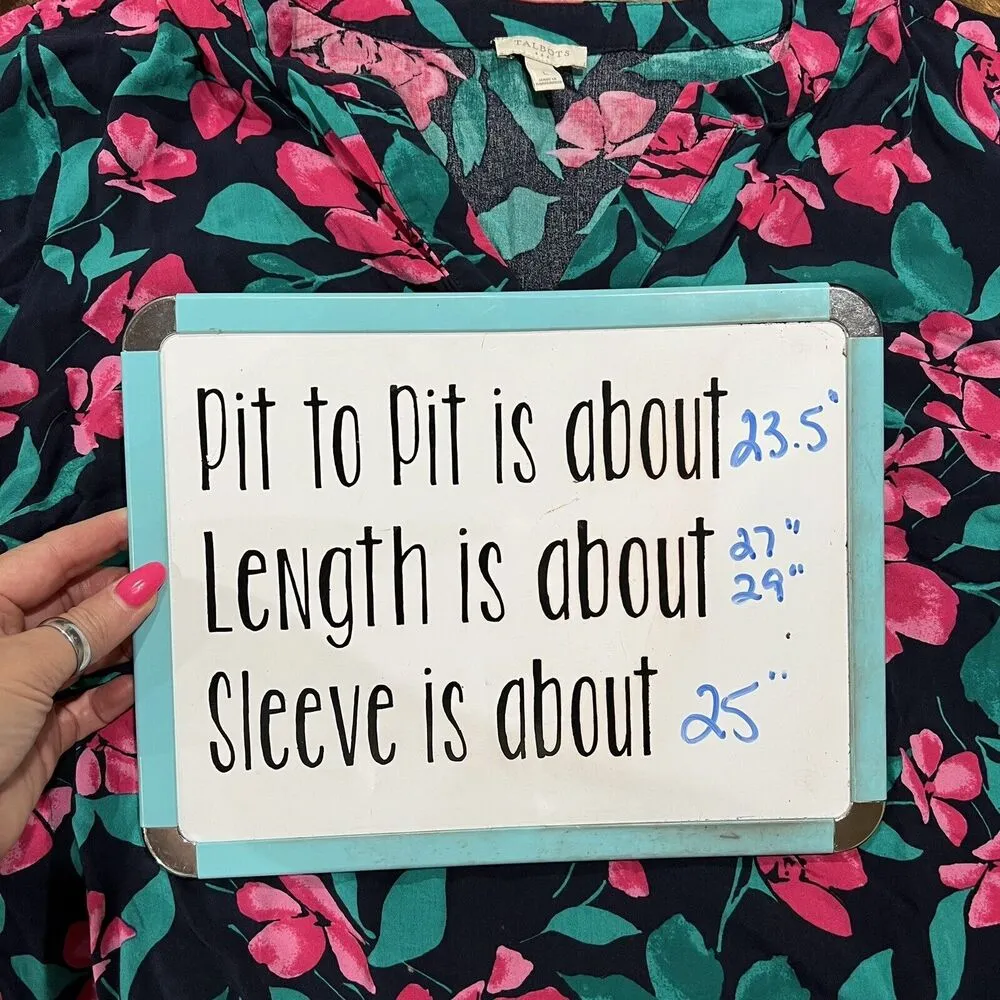 TALBOTS
L
Pit to Pit is about 23.5"
Length is about 27"
29"
Sleeve is about 25"